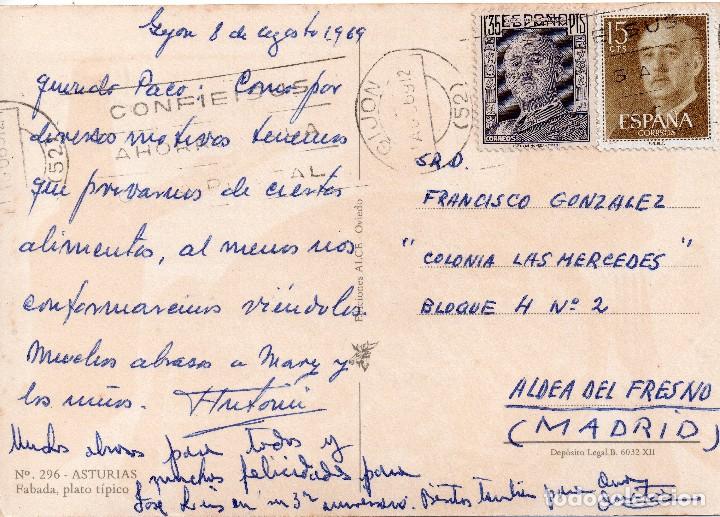 Gijon 8 de agosto 1969
Querido Paco: Como por
diversos motivos tenemos
que privarnos de ciertos
alimentos, al menos nos
conformaremos viéndolos
Muchos abrazos a Mary y
los niños. Antonio
Muchos abrazos para todos y
muchas felicidades para
José Luis en su 3er aniversario. Besitos también para
Nº. 296 - ASTURIAS
Fabada, plato típico
CONFIE SUS
AHORROS A LA
POSTAL
GIJON
(52)
(52)
Ediciones ALCE - Oviedo
1'35 ESPAÑA PTS
CORREOS
15 CTS
ESPAÑA
CORREOS
SRD.
FRANCISCO GONZALEZ
"COLONIA LAS MERCEDES"
BLOQUE H Nº 2
ALDEA DEL FRESNO
(MADRID)
Depósito Legal B. 6032 XII
todocoleccion